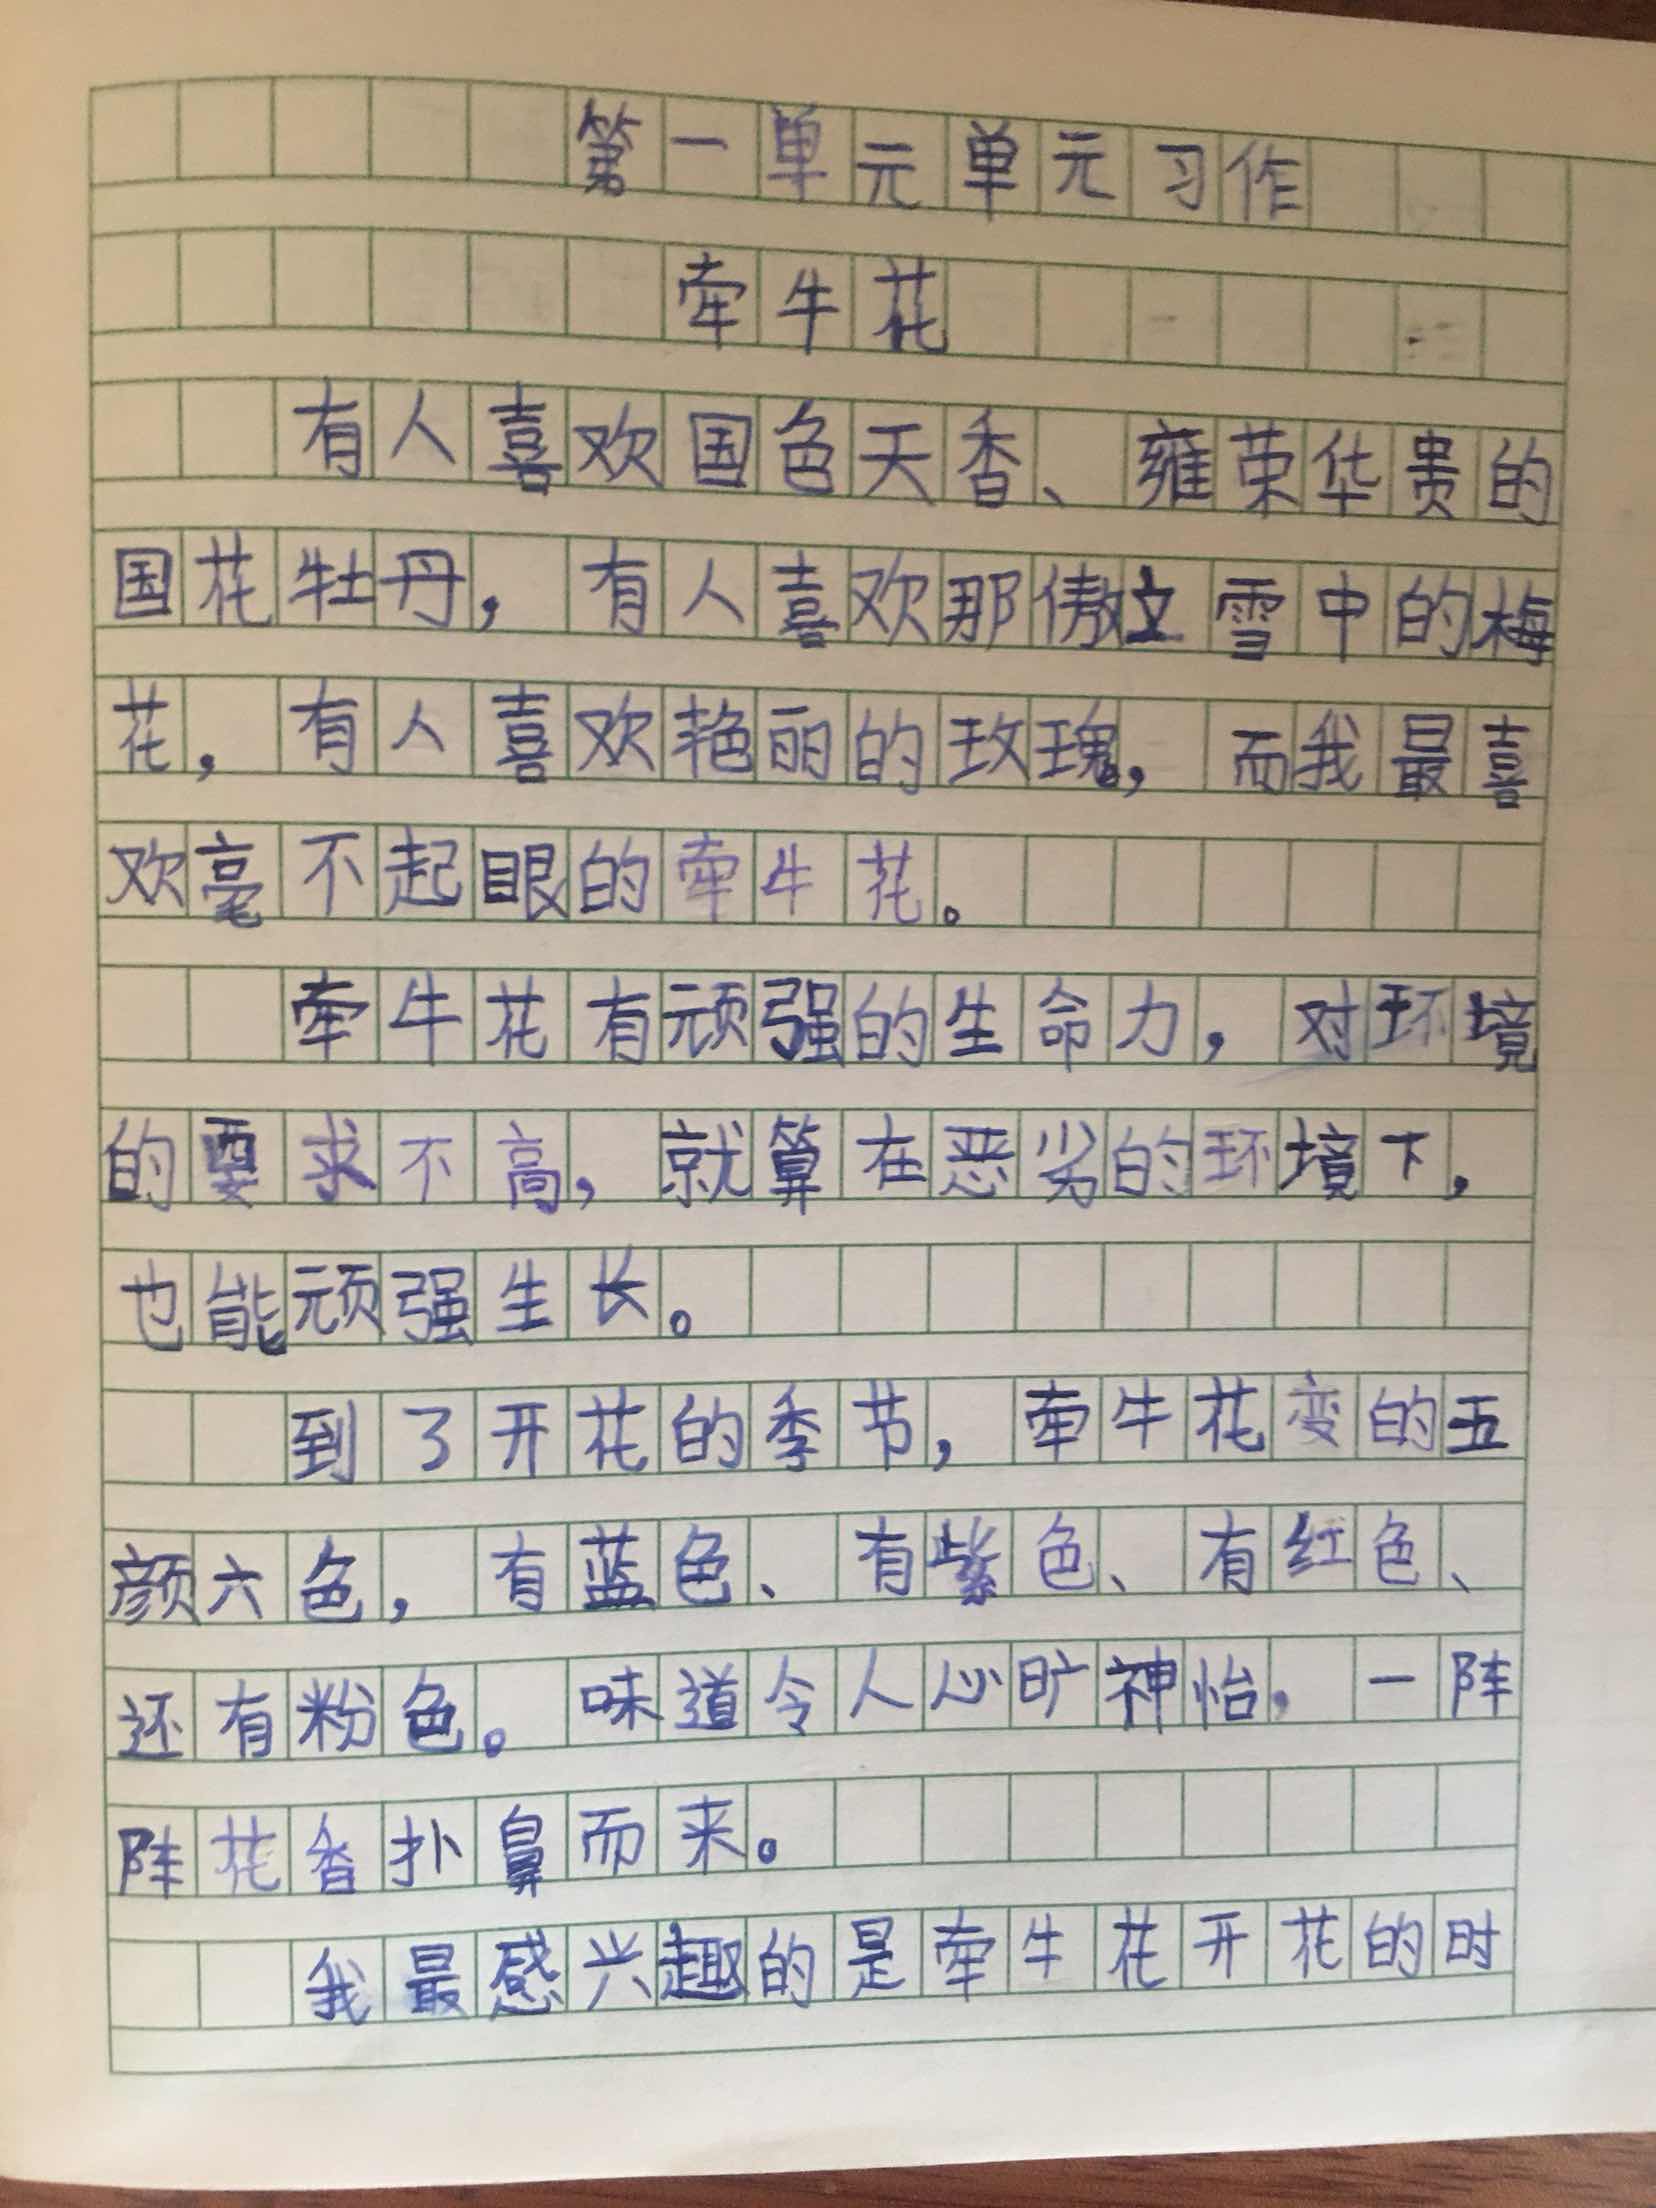 第一单元单元习作
牵牛花
有人喜欢国色天香、雍荣华贵的
国花牡丹，有人喜欢那傲立雪中的梅
花，有人喜欢艳丽的玫瑰，而我最喜
欢毫不起眼的牵牛花。
牵牛花有顽强的生命力，对环境
的要求不高，就算在恶劣的环境下，
也能顽强生长。
到了开花的季节，牵牛花变的五
颜六色，有蓝色、有紫色、有红色、
还有粉色。味道令人心旷神怡，一阵
阵花香扑鼻而来。
我最感兴趣的是牵牛花开花的时